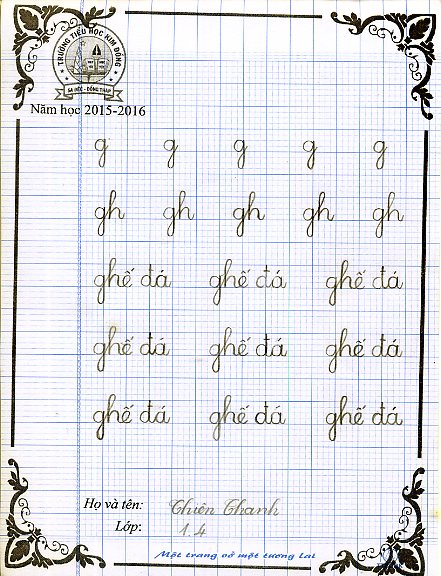 TRƯỜNG TIỂU HỌC KIM ĐỒNG
SA ĐÉC - ĐỒNG THÁP
Năm học 2015-2016
g g g g g
gh gh gh gh gh
ghế đá ghế đá ghế đá
ghế đá ghế đá ghế đá
ghế đá ghế đá ghế đá
Họ và tên: Thiên Thanh
Lớp: 1.4
Một trang vở một tương lai